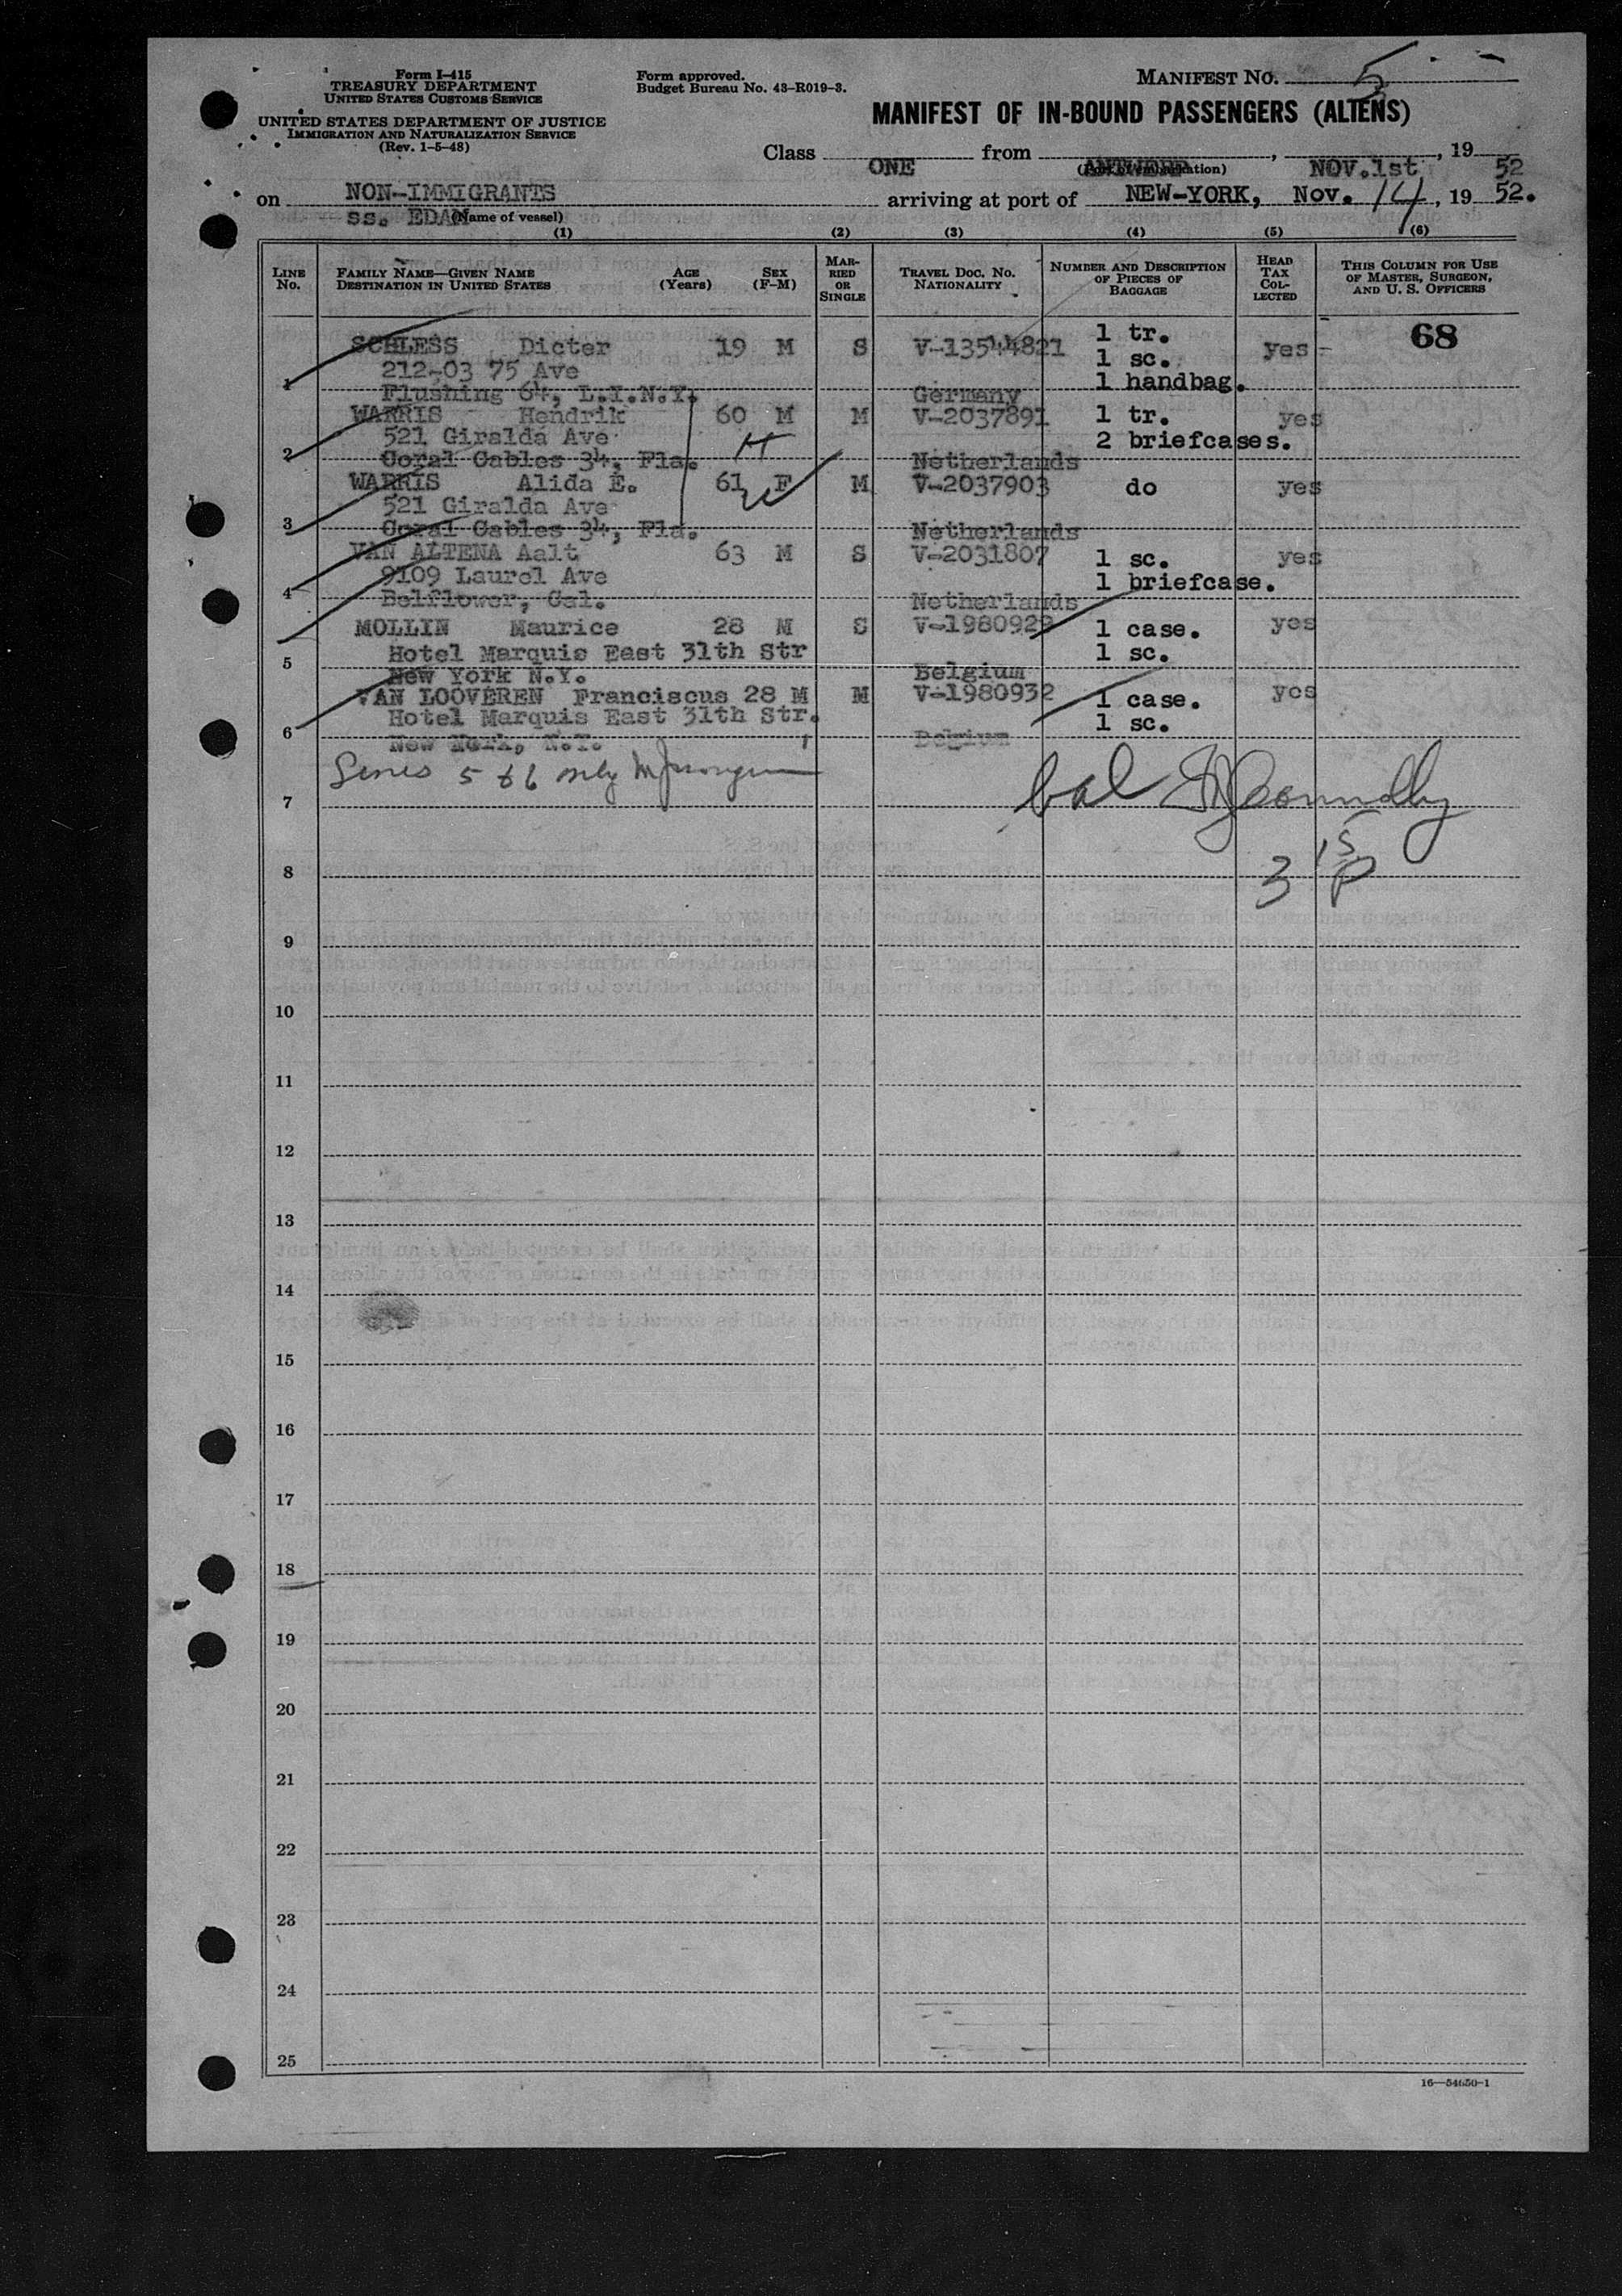 Form I-415
TREASURY DEPARTMENT
UNITED STATES CUSTOMS SERVICE
UNITED STATES DEPARTMENT OF JUSTICE
IMMIGRATION AND NATURALIZATION SERVICE
(Rev. 1-5-48)
Form approved.
Budget Bureau No. 43-R019-3.
MANIFEST NO. 5
MANIFEST OF IN-BOUND PASSENGERS (ALIENS)
Class ONE from ANTWERP, NOV.1st, 19 52
(Port of embarkation)
on NON-IMMIGRANTS arriving at port of NEW-YORK, Nov. 14, 19 52.
ss. EDAM (Name of vessel)
(1) (2) (3) (4) (5) (6)
LINE No. FAMILY NAME—GIVEN NAME DESTINATION IN UNITED STATES AGE (Years) SEX (F-M) MARRIED OR SINGLE TRAVEL DOC. NO. NATIONALITY NUMBER AND DESCRIPTION OF PIECES OF BAGGAGE HEAD TAX COLLECTED THIS COLUMN FOR USE OF MASTER, SURGEON, AND U. S. OFFICERS
SCHLESS Dieter 19 M S V-13544821 1 tr. yes 68
212-03 75 Ave 1 sc.
1 Flushing 64, L.I.N.Y. Germany 1 handbag.
WARRIS Hendrik 60 M M V-2037891 1 tr. yes
521 Giralda Ave H 2 briefcases.
2 Coral Gables 34, Fla. Netherlands
WARRIS Alida E. 61 F M V-2037903 do yes
521 Giralda Ave W
3 Coral Gables 34, Fla. Netherlands
VAN ALTENA Aalt 63 M S V-2031807 1 sc. yes
9109 Laurel Ave 1 briefcase.
4 Belflower, Cal. Netherlands
MOLLIN Maurice 28 M S V-1980929 1 case. yes
5 Hotel Marquis East 31th Str 1 sc.
New York N.Y. Belgium
VAN LOOVEREN Franciscus 28 M M V-1980932 1 case. yes
Hotel Marquis East 31th Str. 1 sc.
6 New York, N.Y. Belgium
Lines 5 & 6 only
bal
7
3 15 P
8
9
10
11
12
13
14
15
16
17
18
19
20
21
22
23
24
25
16—54650-1